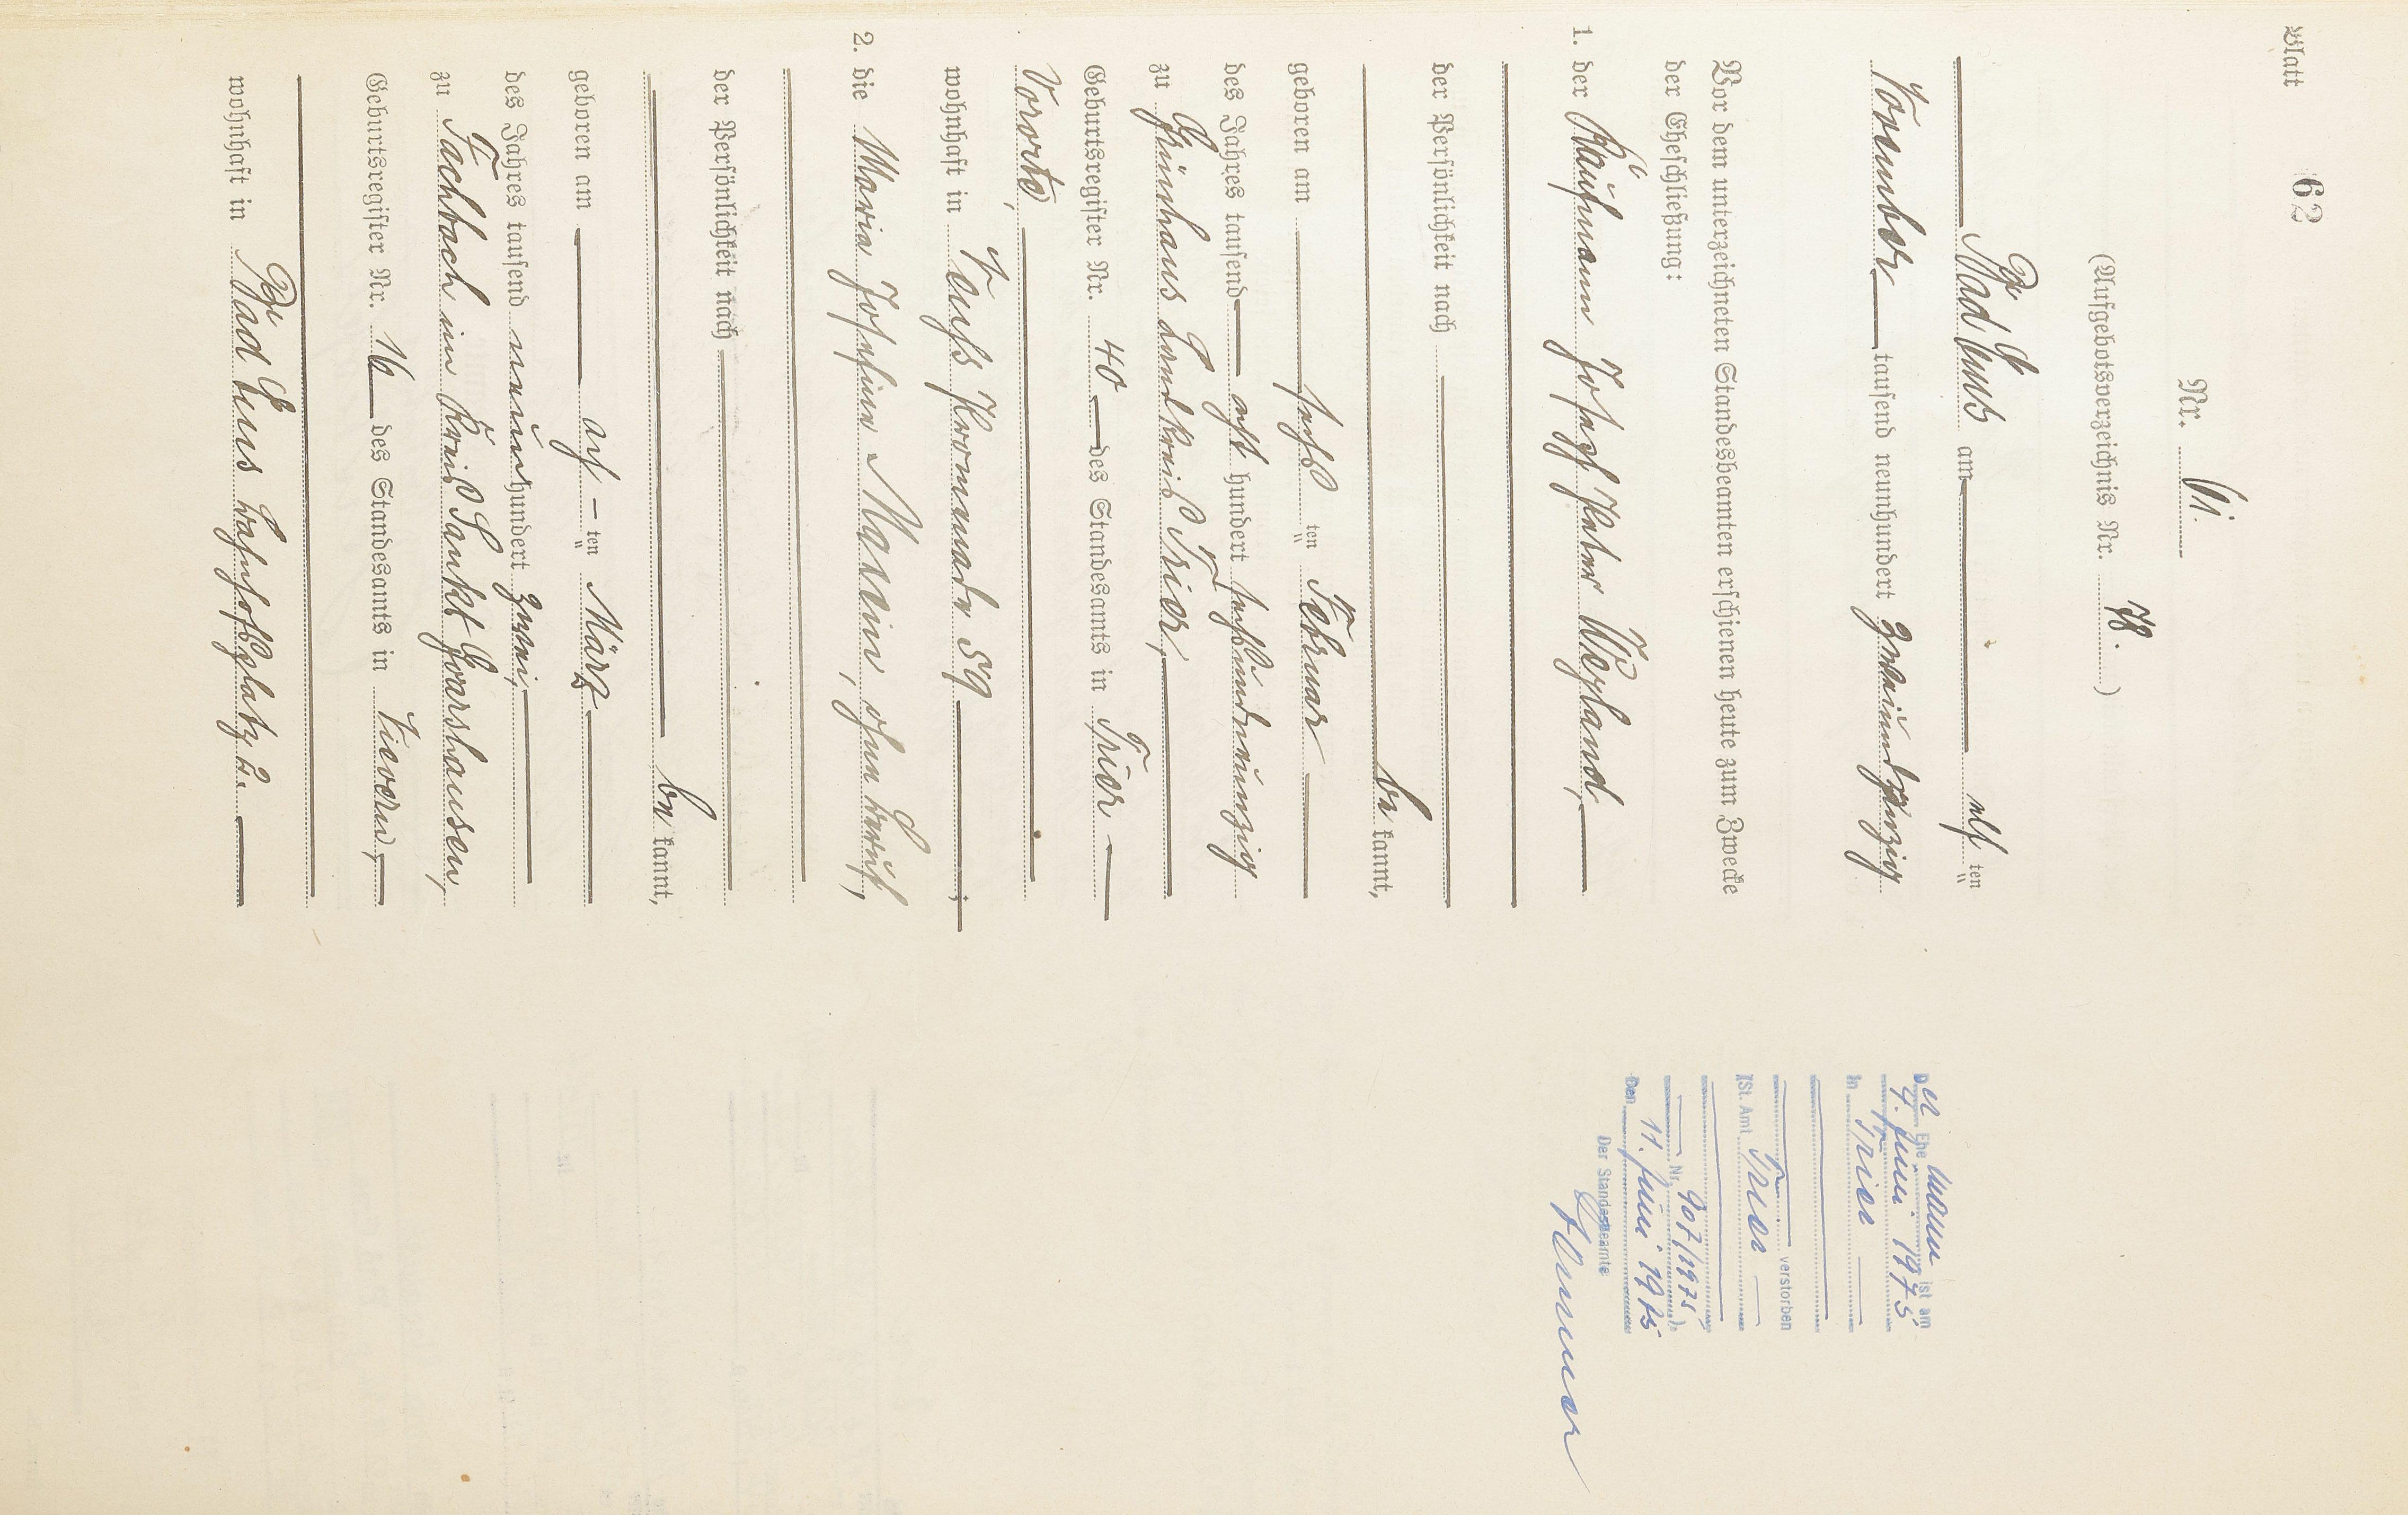 Blatt 62
Nr. 61.
(Aufgebotsverzeichnis Nr. 78.)
Bad Ems am elf ten
November tausend neunhundert zweiunddreißig
Vor dem unterzeichneten Standesbeamten erschienen heute zum Zwecke
der Eheschließung:
1. der Kaufmann Josef Peter Weyland,
der Persönlichkeit nach
be kannt,
geboren am sechs ten Februar
des Jahres tausend acht hundert sechsundneunzig
zu Grünhaus Landkreis Trier,
Geburtsregister Nr. 40 des Standesamts in Trier
Vororte,
wohnhaft in Neuss Promenade 59 ;
2. die Maria Josefine Maxein, ohne Beruf,
der Persönlichkeit nach
be kannt,
geboren am acht ten März
des Jahres tausend neun hundert zwei,
zu Fachbach im Kreis Sankt Goarshausen,
Geburtsregister Nr. 16 des Standesamts in Nievern,
wohnhaft in Bad Ems Bahnhofsplatz 2.
Der Ehe mann ist am
4. Juni 1975
in Trier
verstorben
(St. Amt Trier
Nr. 907/1975 ).
Den 11. Juni 1975
Der Standesbeamte